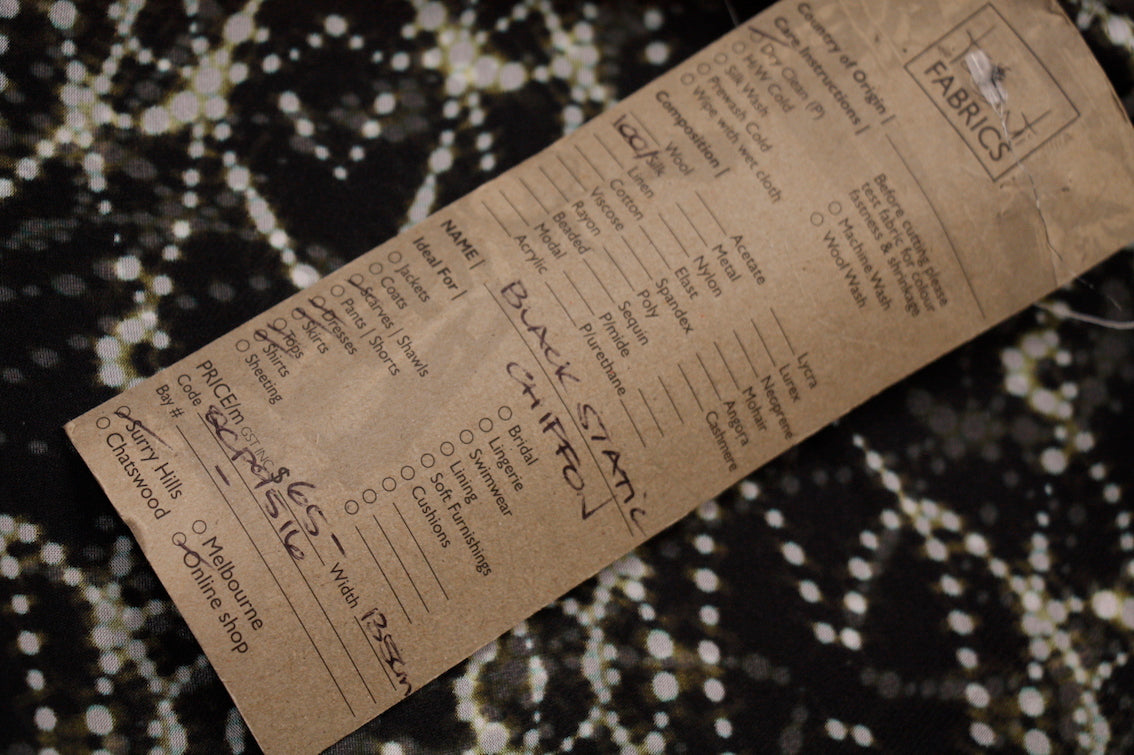 FABRICS
Country of Origin |
Care Instructions |
Dry Clean (P)
H/W Cold
Silk Wash
Prewash Cold
Wipe with wet cloth
Before cutting please
test fabric for colour
fastness & shrinkage
Machine Wash
Wool Wash
Composition |
Wool
100/ Silk
Linen
Cotton
Viscose
Rayon
Beaded
Modal
Acrylic
Acetate
Metal
Nylon
Elast
Spandex
Poly
Sequin
P/mide
P/urethane
Lycra
Lurex
Neoprene
Mohair
Angora
Cashmere
NAME | BLACK STATIC
CHIFFON
Ideal For |
Jackets
Coats
Scarves | Shawls
Pants | Shorts
Dresses
Skirts
Tops
Shirts
Sheeting
Bridal
Lingerie
Swimwear
Lining
Soft Furnishings
Cushions
PRICE/m GST INC $ 65 - Width 135cm
Code
Bay # -
Surry Hills
Chatswood
Melbourne
Online shop